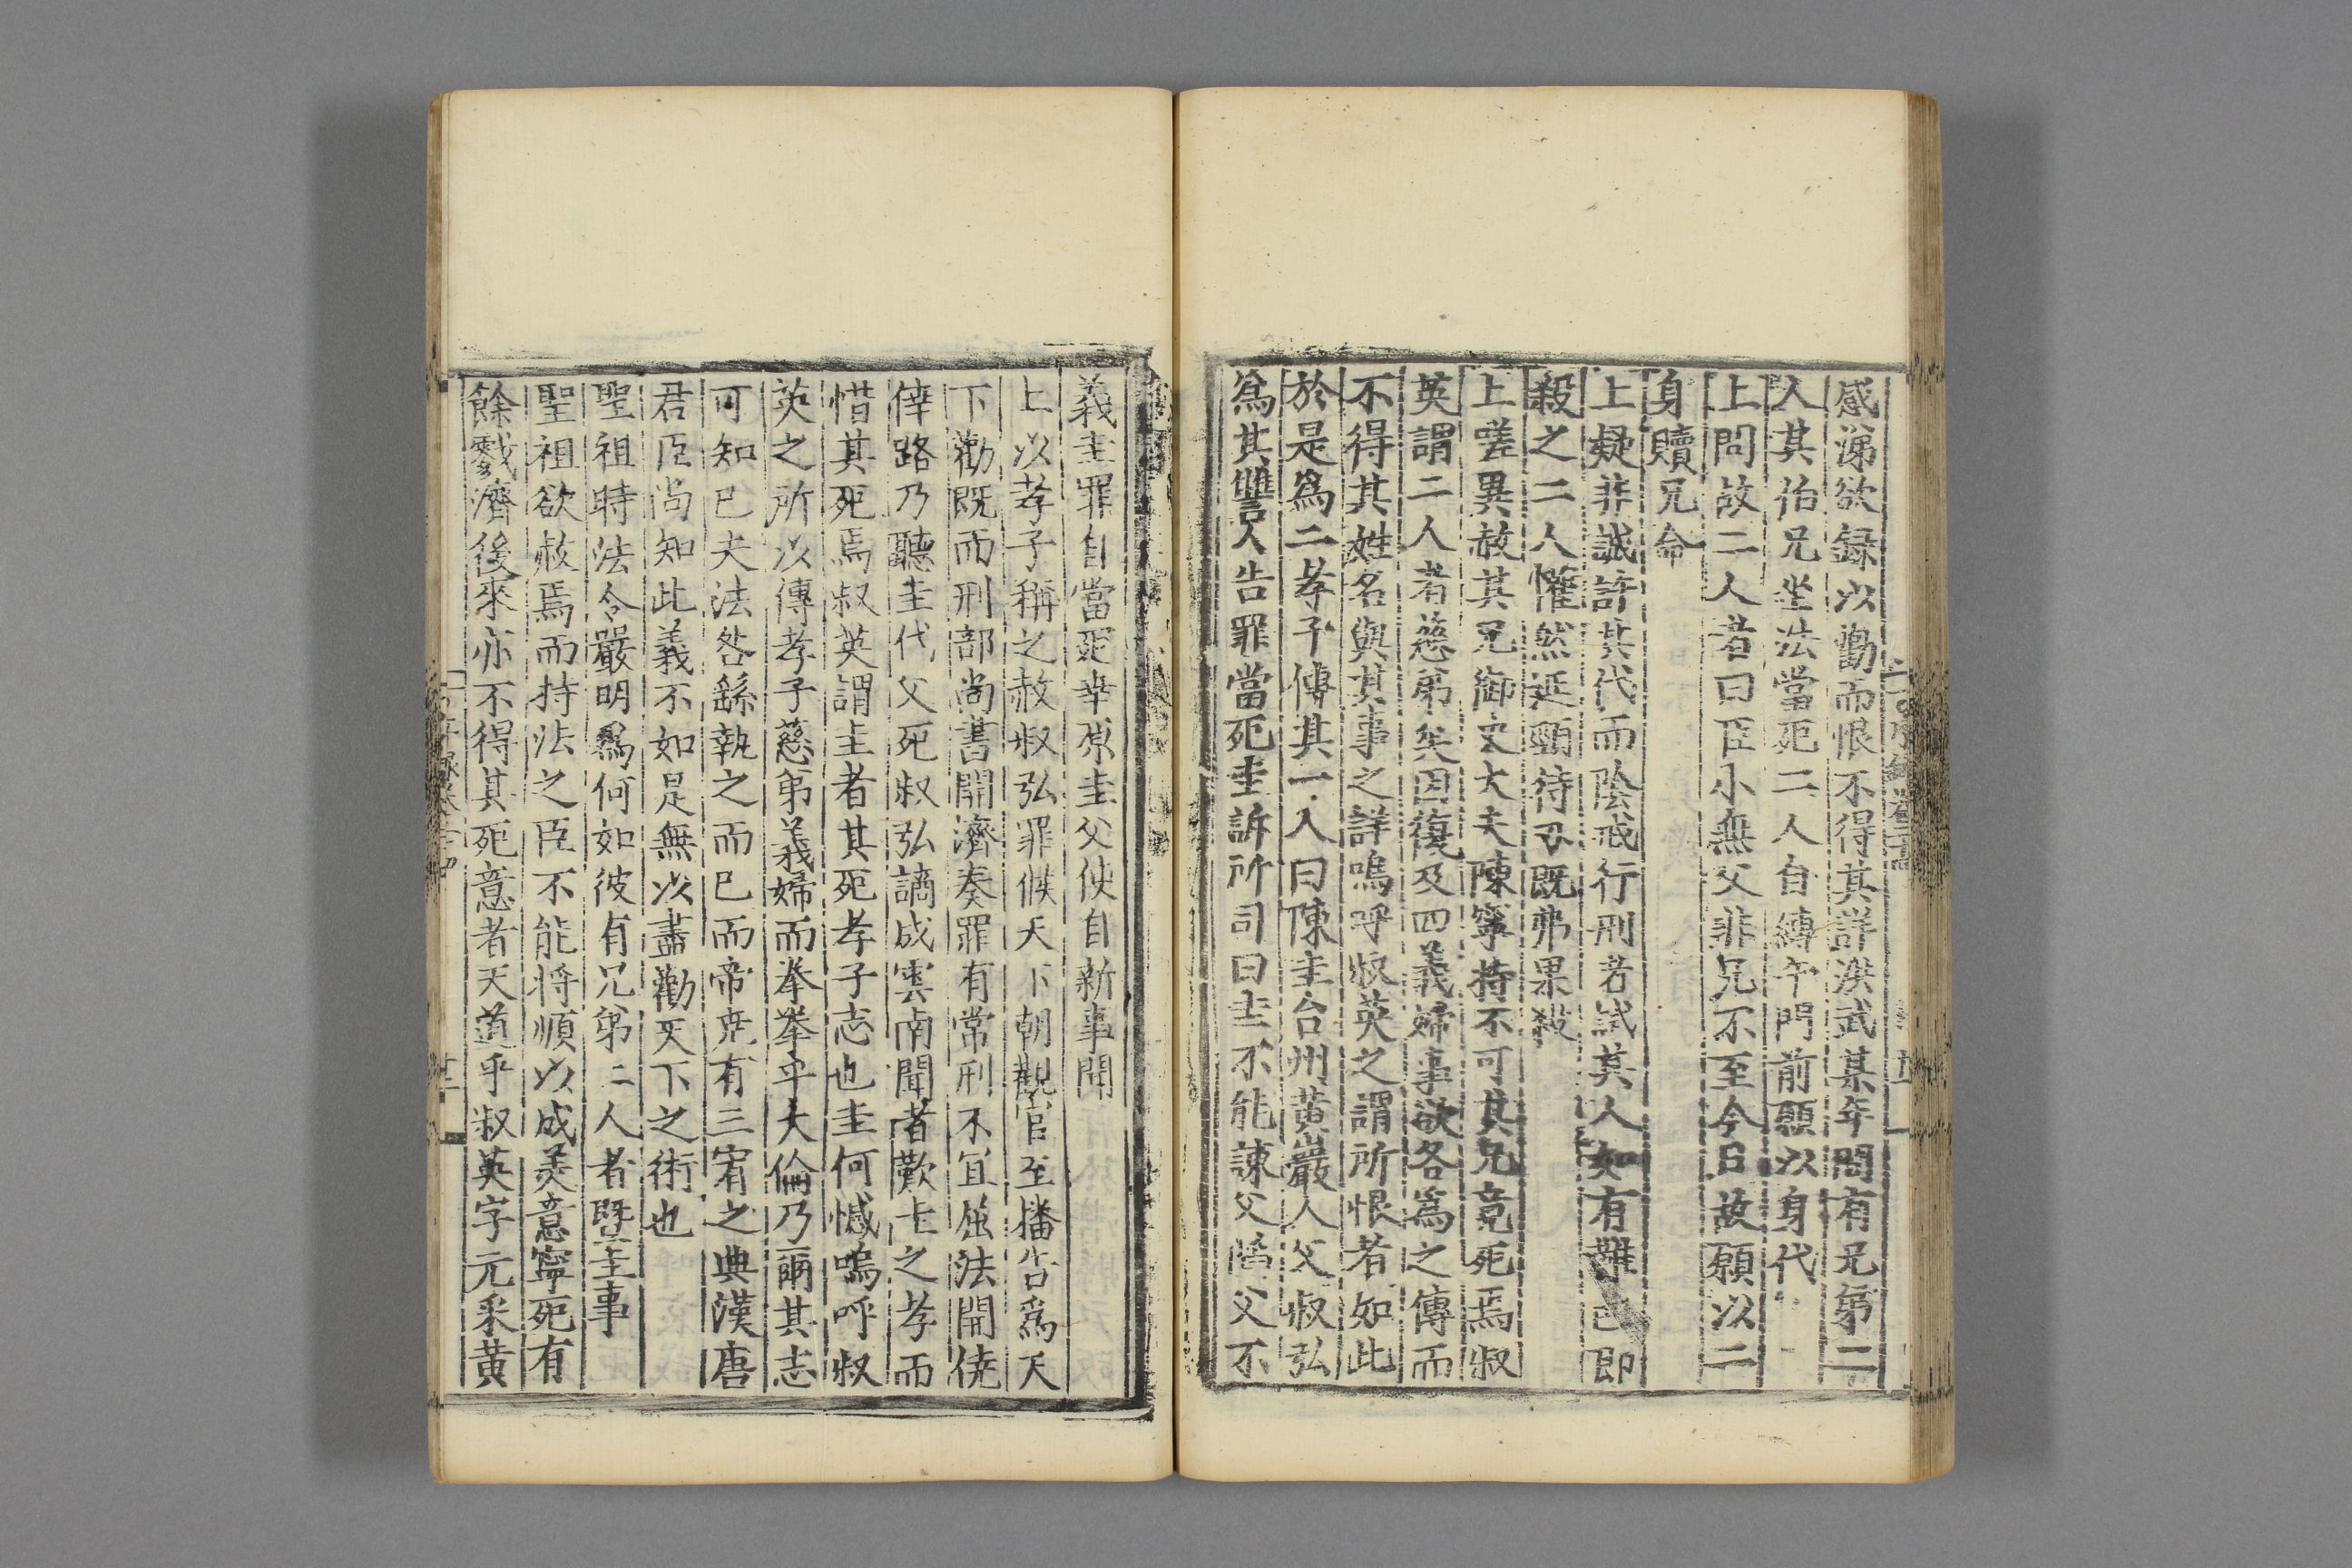 感涕欲録以勸而恨不得其詳洪武某年間有兄弟二
人其伯兄坐法當死二人自縛午門前願以身代
上問故二人者曰臣小無父非兄不至今日故願以二
身贖兄命
上疑非誠許其代而陰戒行刑者試其人如有難色即
殺之二人懽然延頸待刃既弗果殺
上嗟異赦其兄御史大夫陳寧持不可其兄竟死焉叔
英謂二人者慈弟矣因復及四義婦事欲各為之傳而
不得其姓名與其事之詳嗚呼叔英之謂所恨者如此
於是為二孝子傳其一人曰陳圭台州黃巖人父叔弘
為其讐人告罪當死圭訴所司曰圭不能諫父陷父不
義圭罪自當死幸原圭父使自新事聞
上以孝子稱之赦叔弘罪候天下朝覲官至播告為天
下勸既而刑部尚書開濟奏罪有常刑不宜屈法開僥
倖路乃聽圭代父死叔弘謫戍雲南聞者歎圭之孝而
惜其死焉叔英謂圭者其死孝子志也圭何憾嗚呼叔
英之所以傳孝子慈弟義婦而拳拳乎大倫乃爾其志
可知已夫法咎繇執之而已而帝堯有三宥之典漢唐
君臣尚知此義不如是無以盡勸天下之術也
聖祖時法令嚴明為何如彼有兄弟二人者暨圭事
聖祖欲赦焉而持法之臣不能將順以成美意寧死有
餘戮濟後來亦不得其死意者天道乎叔英字元采黃